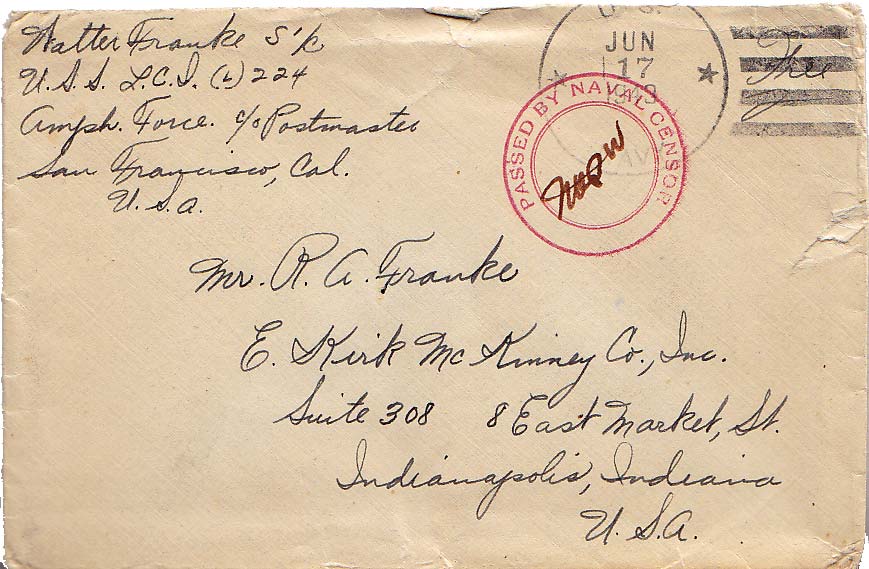 Walter Franke S 1/c
U.S.S. L.C.I. (L) 224
Amph. Force. c/o Postmaster
San Francisco, Cal.
U.S.A.
U. S.
JUN
17
1943
NAVY
Free
PASSED BY NAVAL CENSOR
Mr. R. A. Franke
E. Kirk McKinney Co., Inc.
Suite 308 8 East Market, St.
Indianapolis, Indiana
U.S.A.